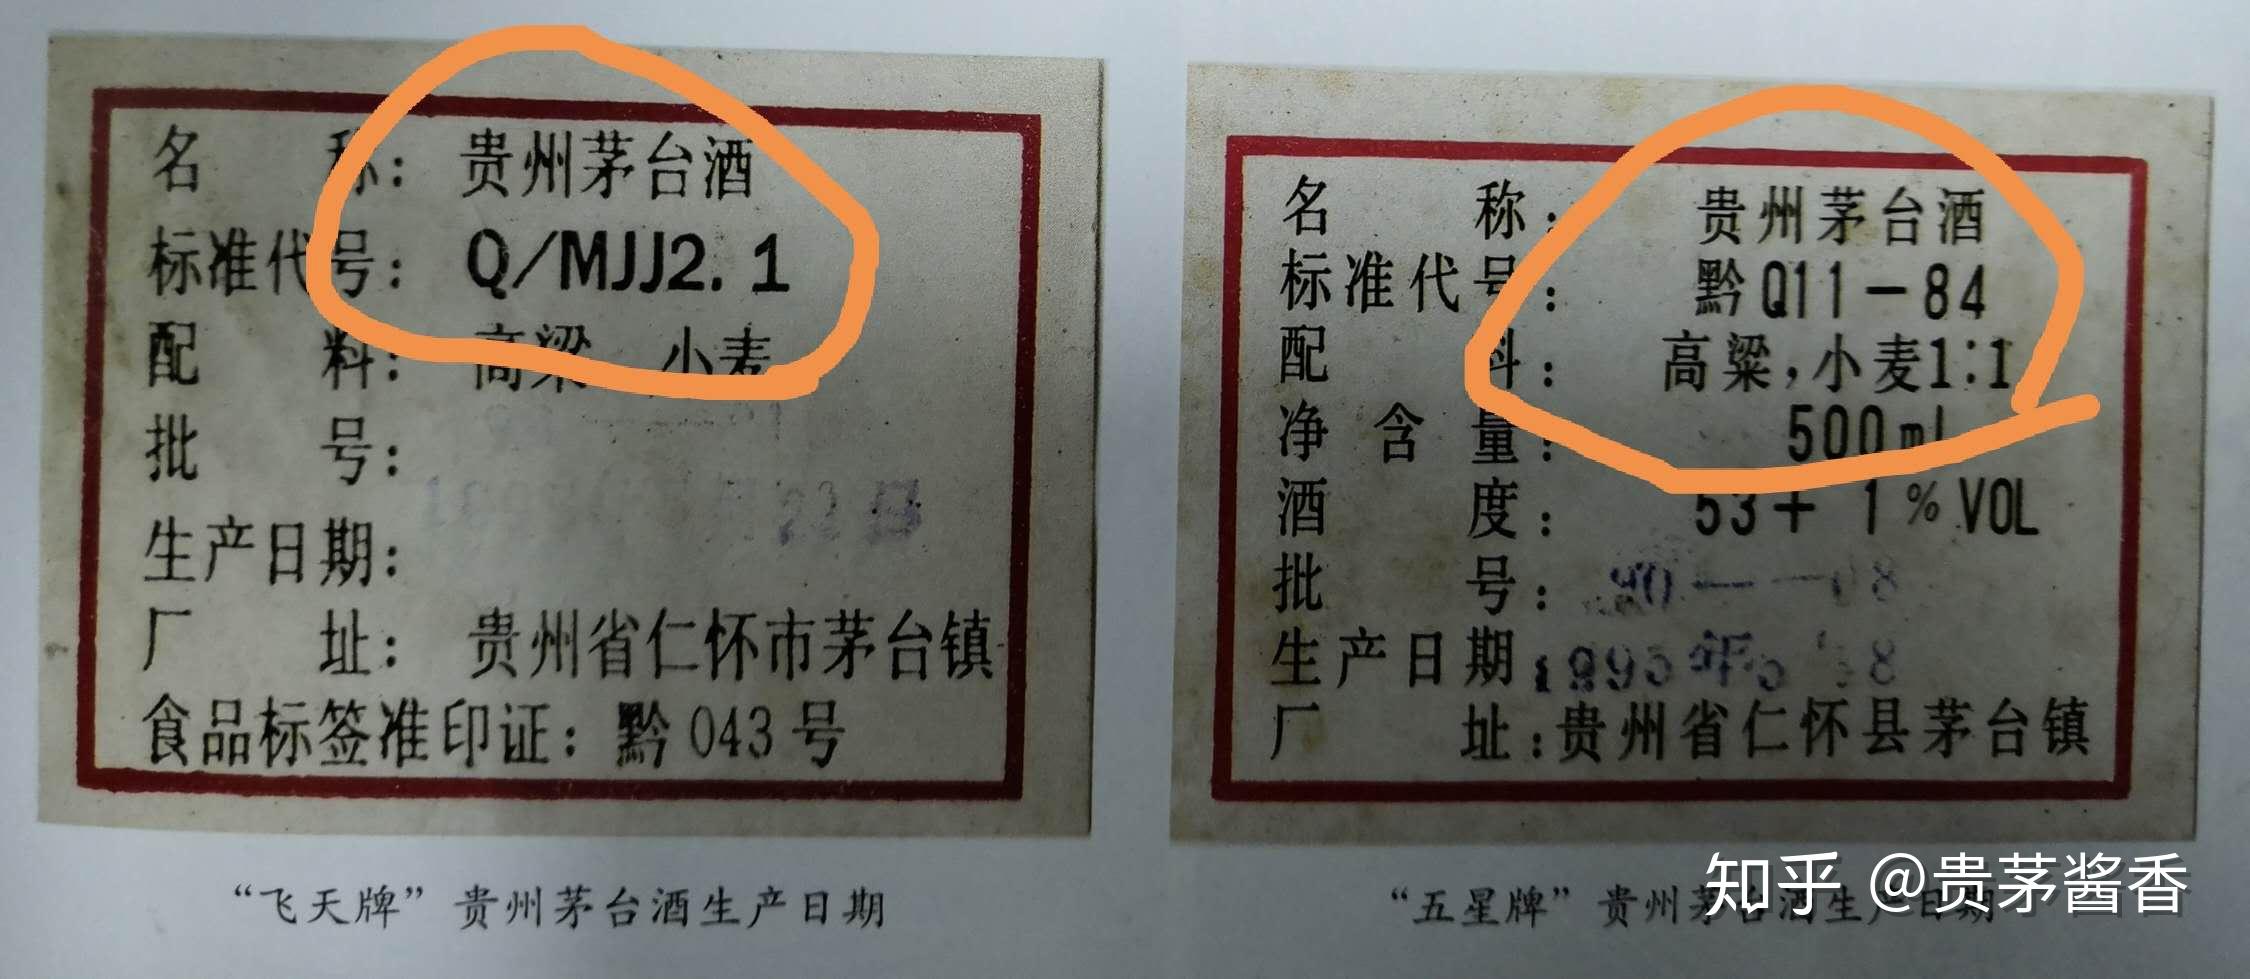 名 称: 贵州茅台酒
标准代号: Q/MJJ2.1
配 料: 高粱 小麦
批 号:
生产日期:
厂 址: 贵州省仁怀市茅台镇
食品标签准印证: 黔043号
“飞天牌”贵州茅台酒生产日期
名 称: 贵州茅台酒
标准代号: 黔Q11-84
配 料: 高粱,小麦1:1
净含量: 500ml
酒 度: 53+ 1%VOL
批 号:
生产日期:
厂 址:贵州省仁怀县茅台镇
“五星牌”贵州茅台酒生产日期
知乎 @贵茅酱香